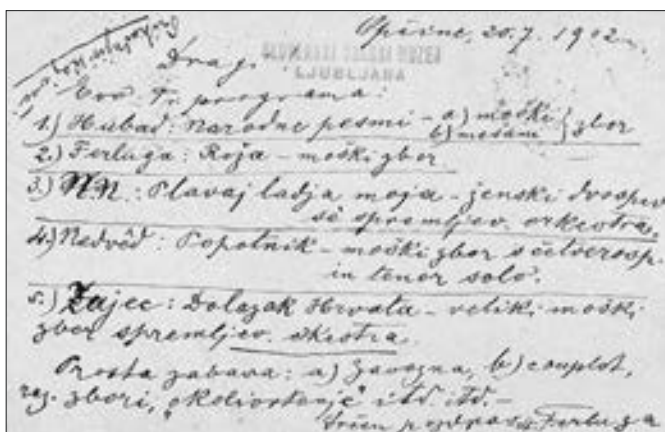 Opčine, 20.7.1912.
Dragi
LJUBLJANA
Evo Ti programa:
1.) Hubad: Narodne pesmi – a) moški
b) mešani } zbor
2.) Ferluga: Roža – moški zbor
3.) N.N.: Plavaj ladja moja – ženski dvospev
sè spremljev. orkestra.
4.) Nedvěd: Popotnik – moški zbor s četverosp.
in tenor solo.
5.) Zajec: Dolazak Hrvata – veliki moški
zbor spremljev. orkestra.
Prosta zabava: a) b) couplet,
raz. zbori, itd. itd. –
Srčen pozdrav Ferluga